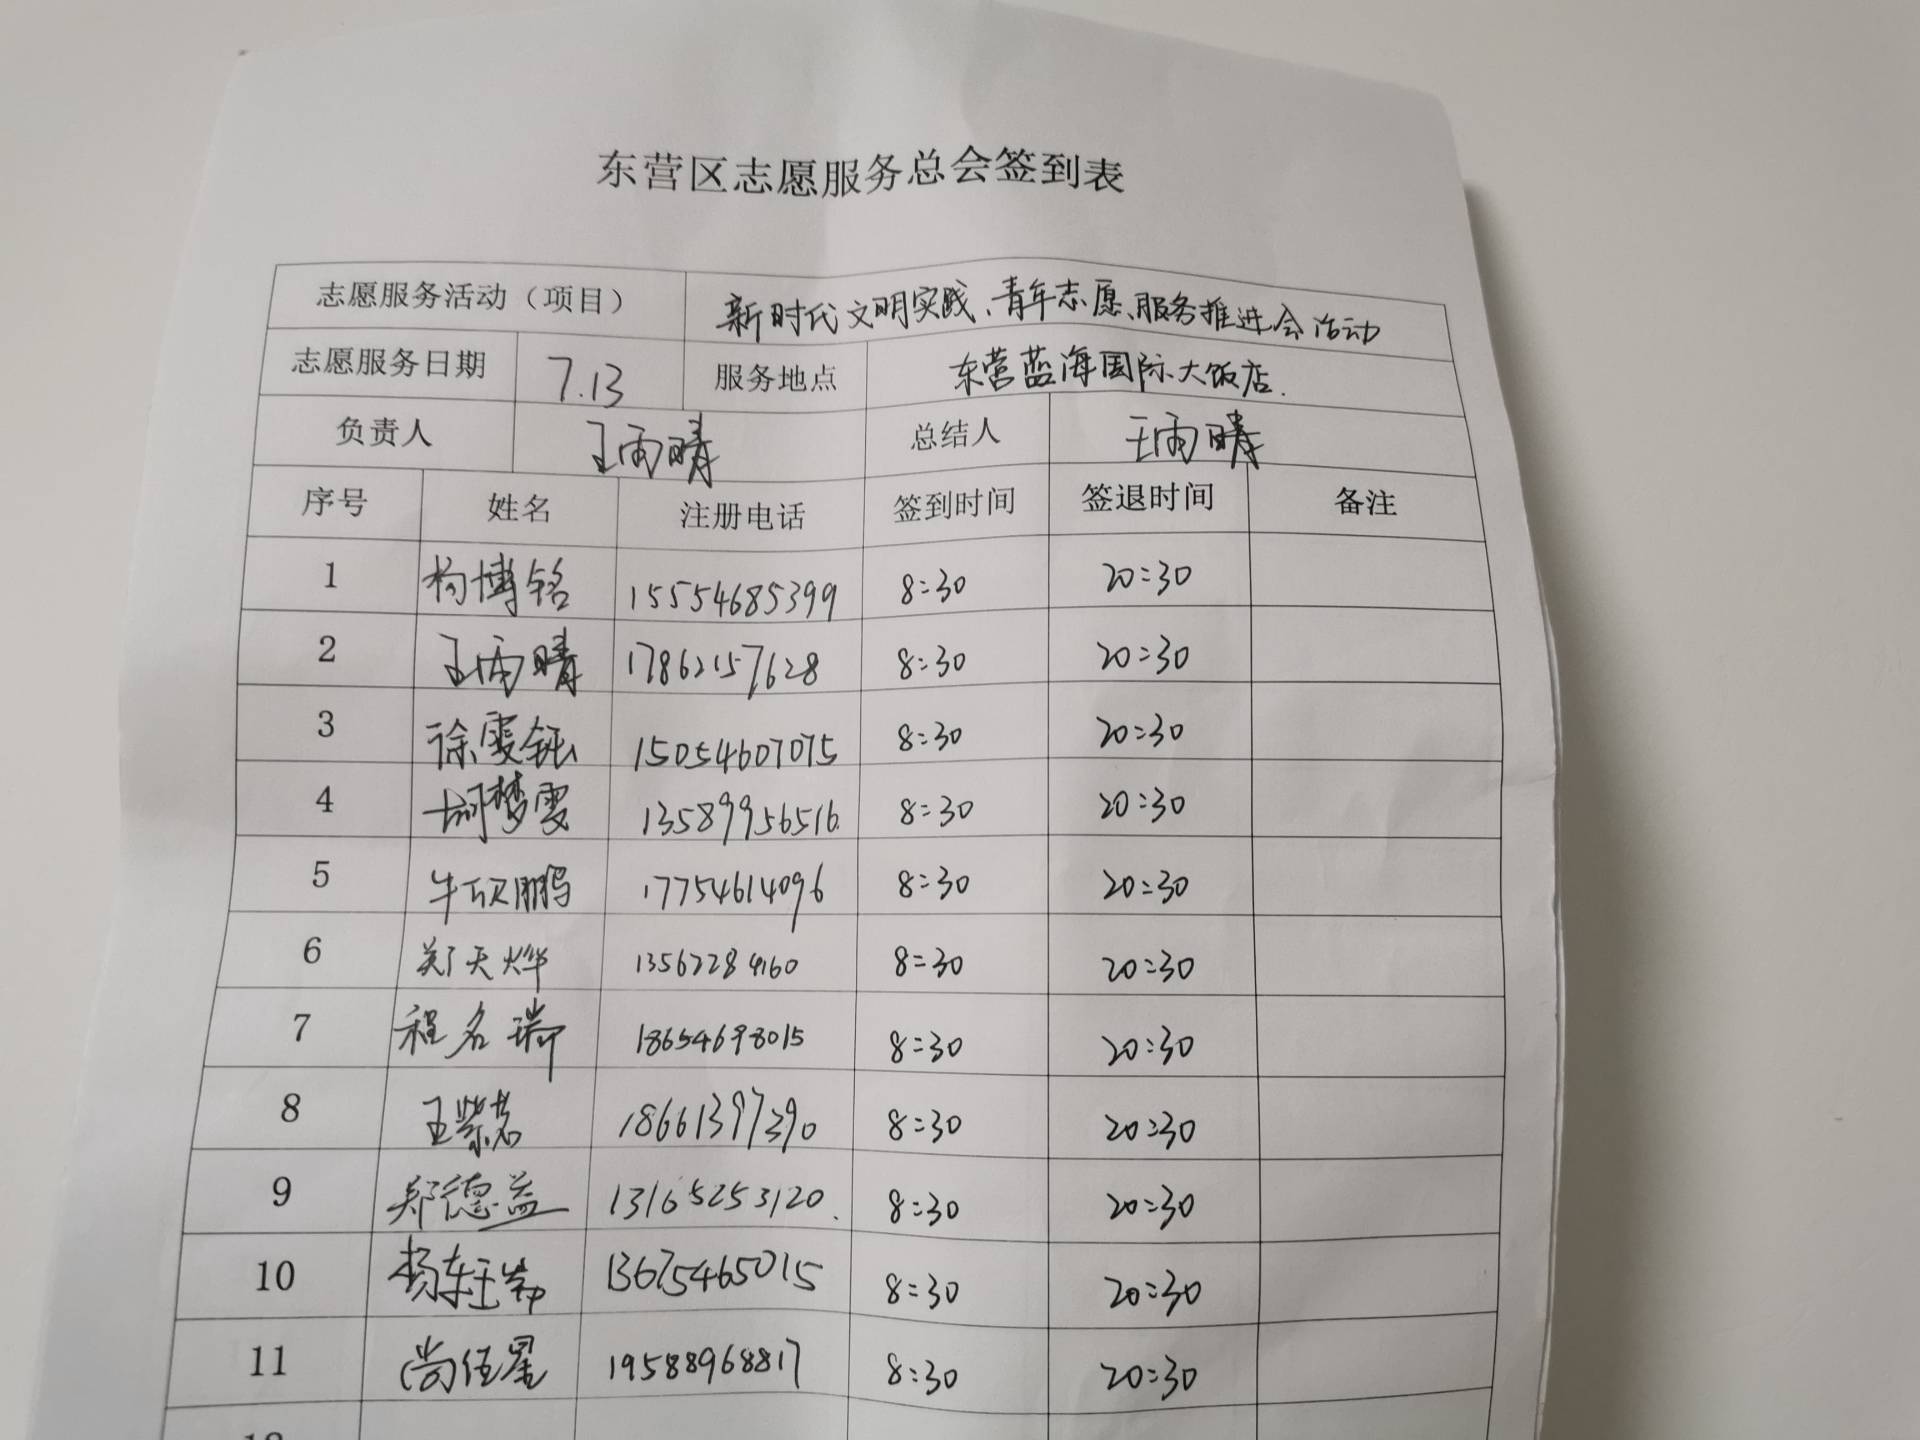 东营区志愿服务总会签到表
志愿服务活动（项目） 新时代文明实践、青年志愿服务推进会活动
志愿服务日期 7.13 服务地点 东营蓝海国际大饭店.
负责人 王雨晴 总结人 王雨晴
序号 姓名 注册电话 签到时间 签退时间 备注
1 杨博铭 15554685399 8:30 20:30
2 王雨晴 17862157628 8:30 20:30
3 徐雯钰 15054607075 8:30 20:30
4 胡梦雯 13589956516 8:30 20:30
5 牛欣鹏 17754614096 8:30 20:30
6 郑天烨 13562284160 8:30 20:30
7 程名瑞 18654698015 8:30 20:30
8 王紫茗 18661397390 8:30 20:30
9 郑德益 13165253120. 8:30 20:30
10 13675465015 8:30 20:30
11 尚伍星 19588968817 8:30 20:30